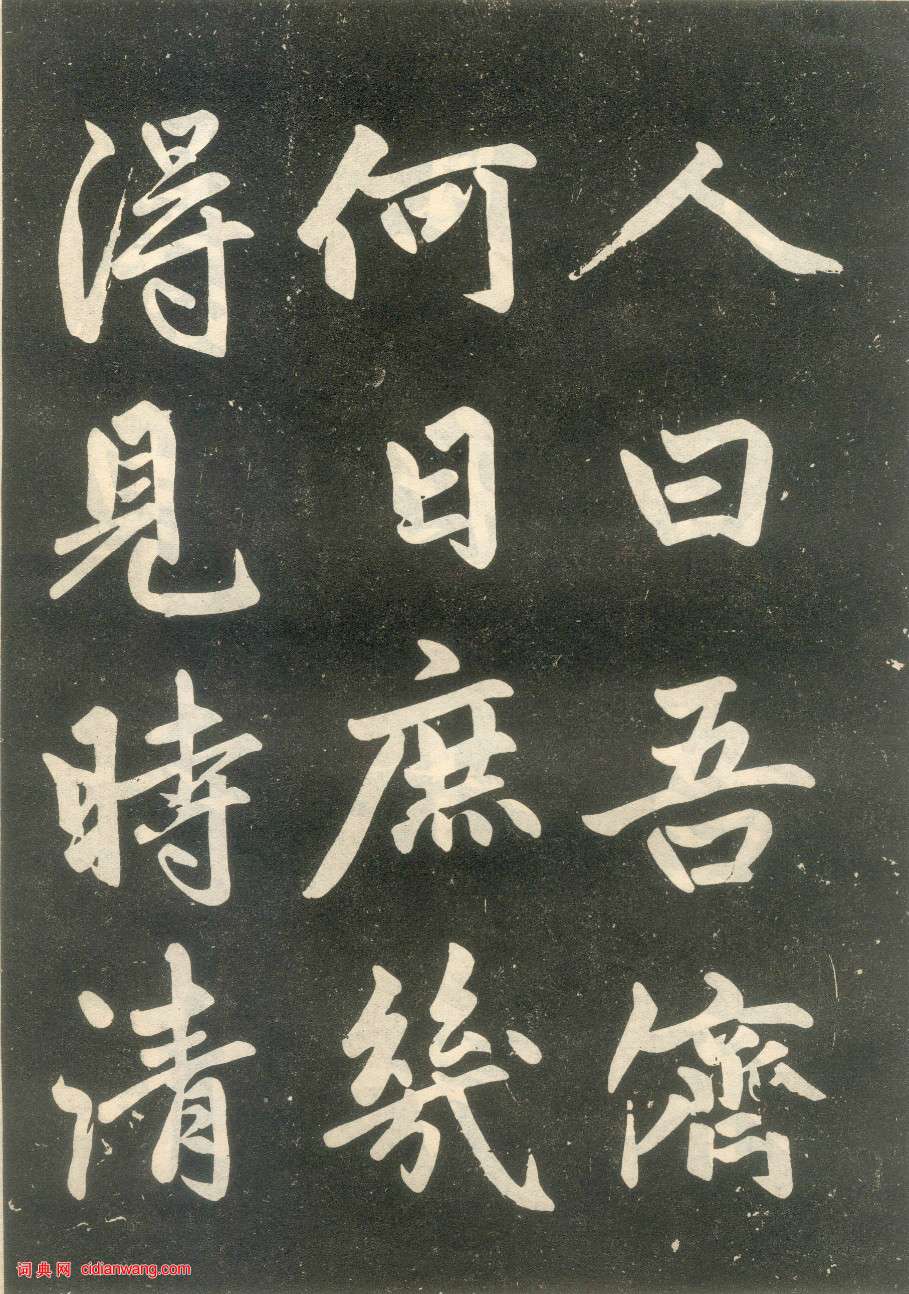 人曰吾儕
何日庶幾
得見時清
词典网 cidianwang.com